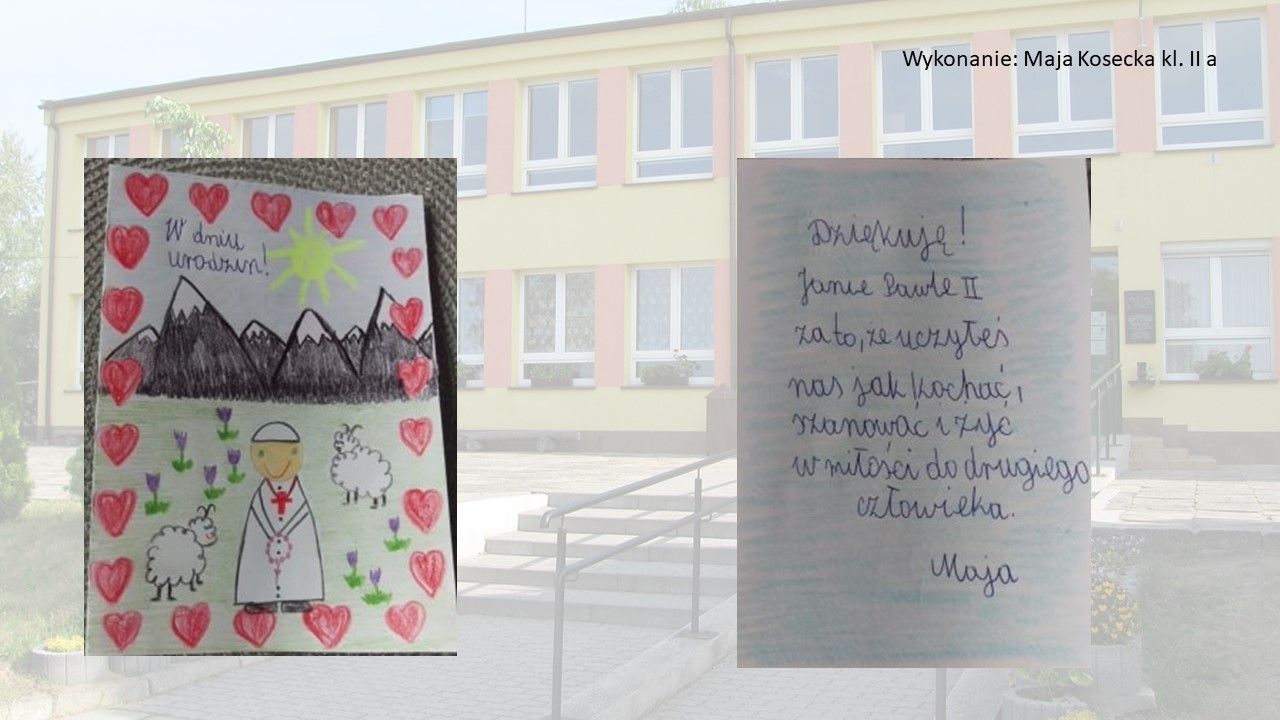 Wykonanie: Maja Kosecka kl. II a
W dniu
urodzin!
Dziękuję!
Janie Pawle II
za to, że uczyłeś
nas jak kochać,
szanować i żyć
w miłości do drugiego
człowieka.
Maja